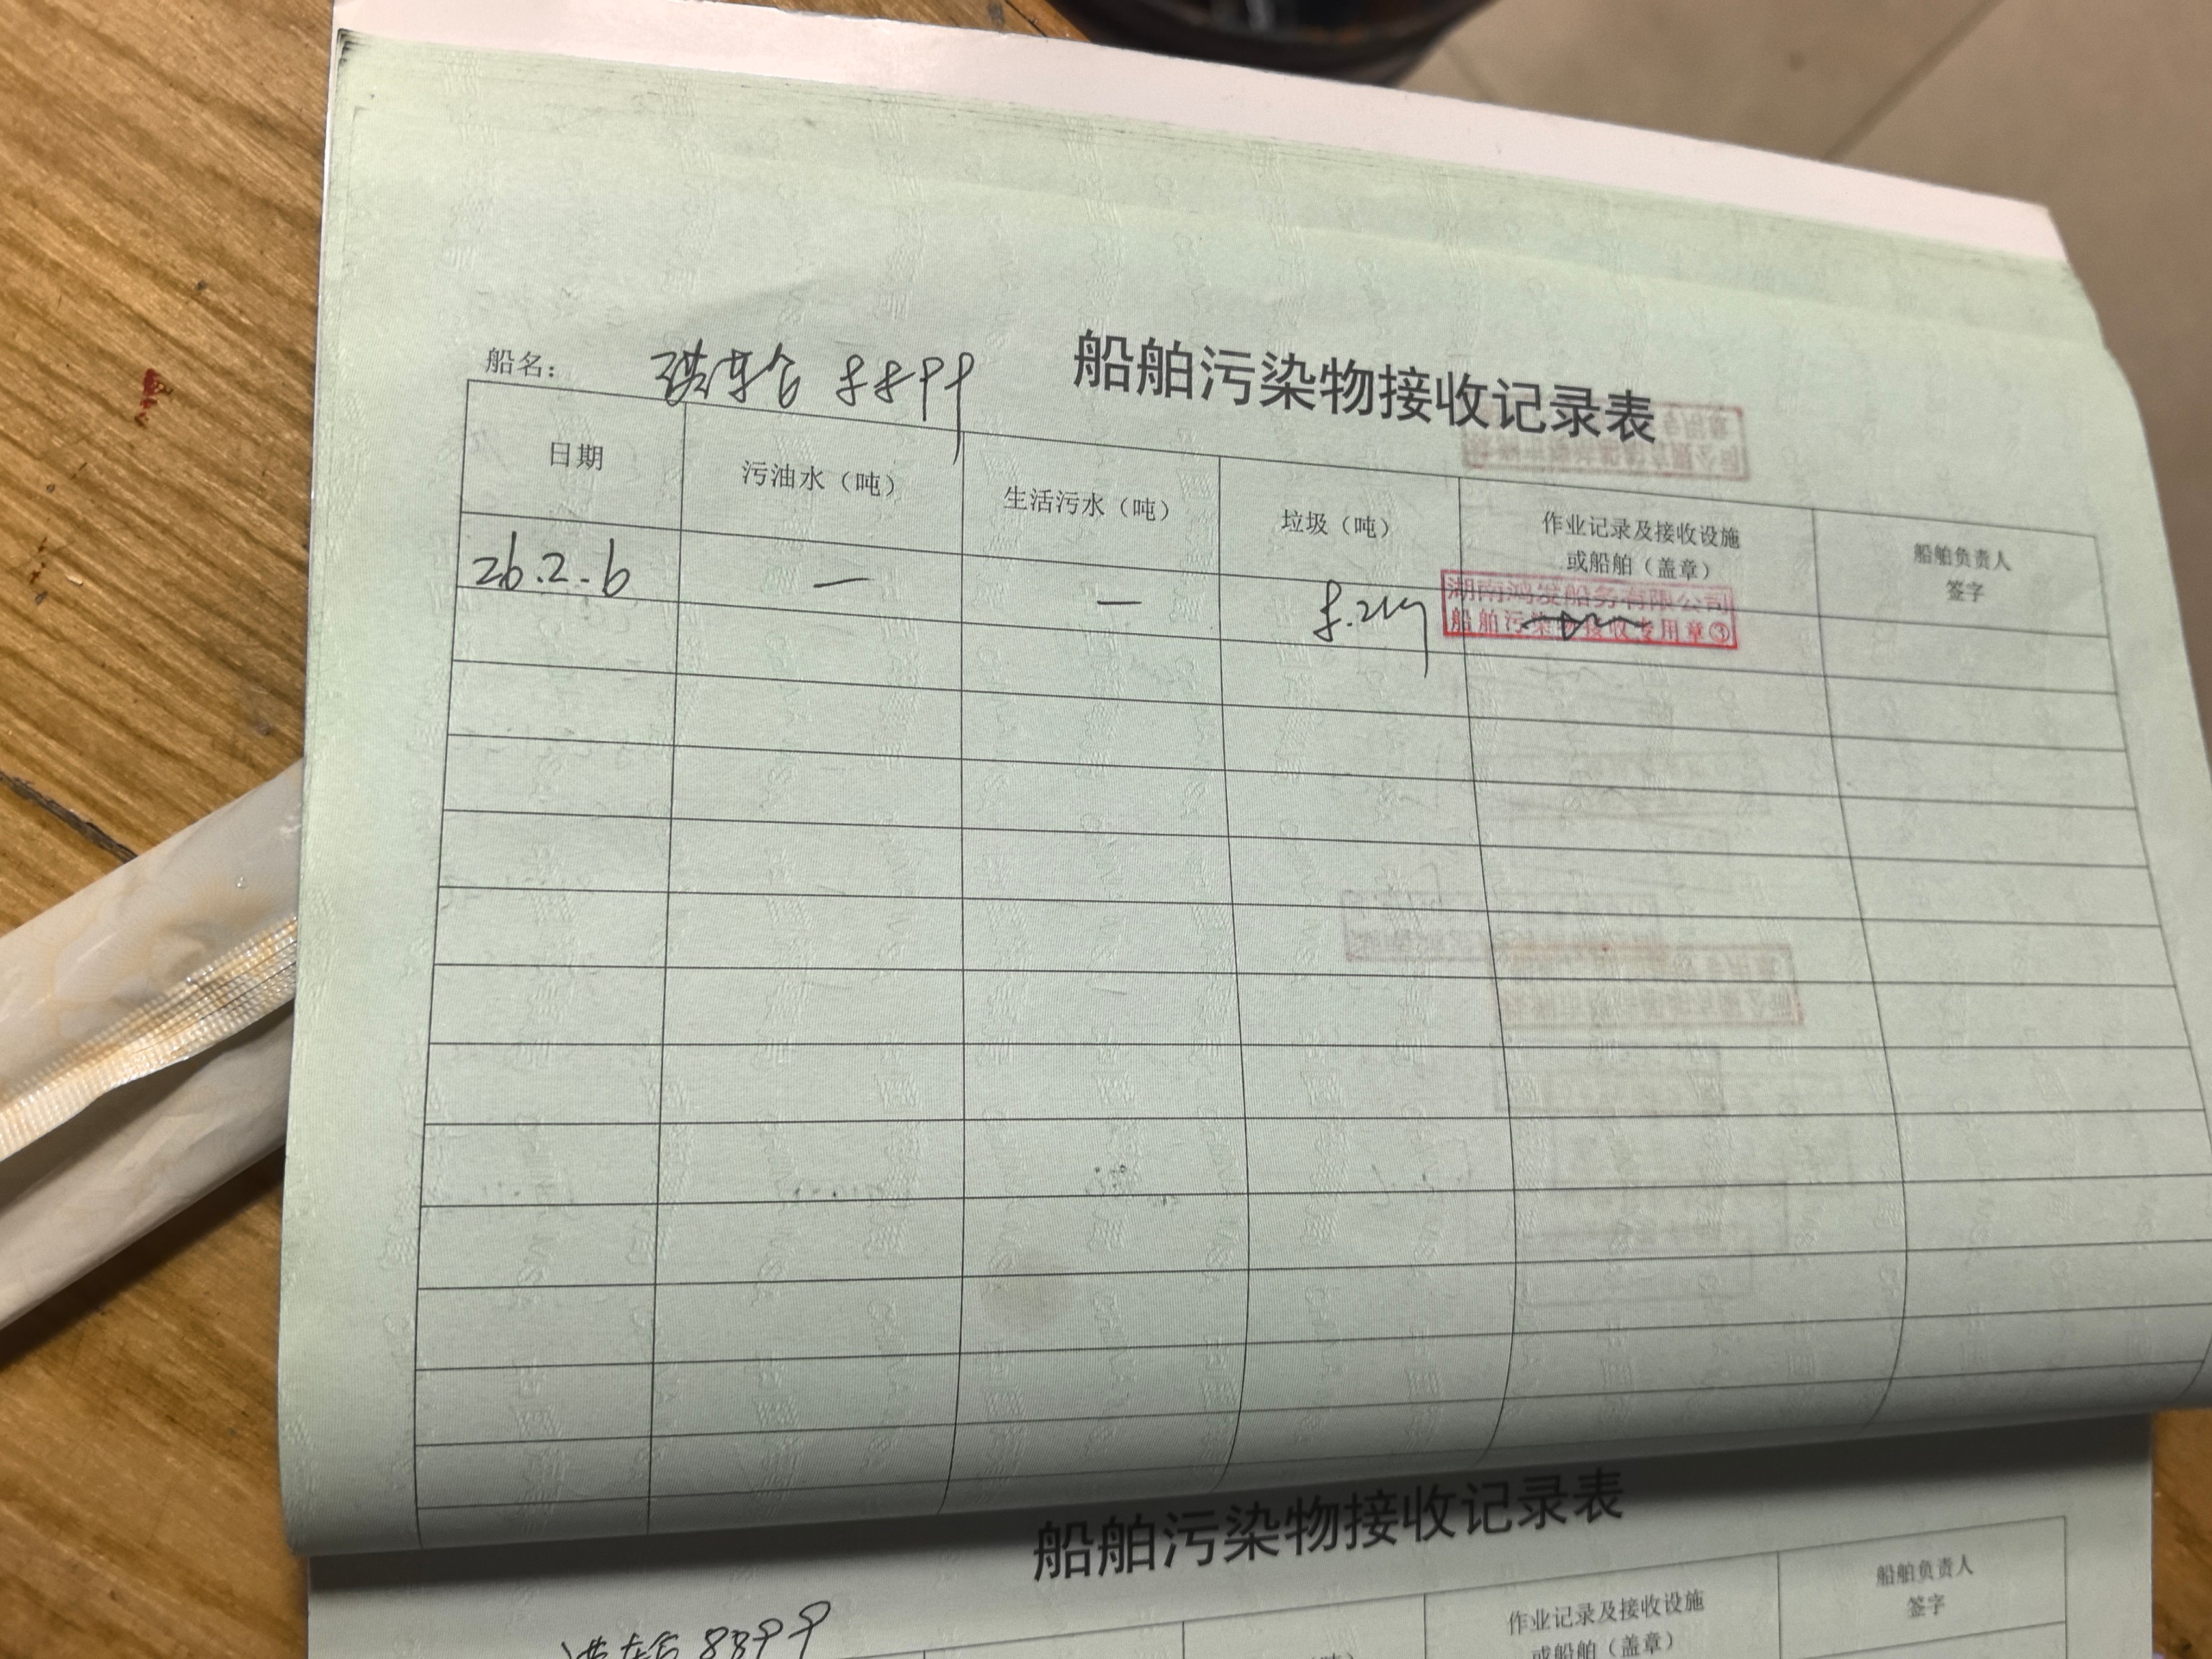 船舶污染物接收记录表
船名： 8899
日期 污油水（吨） 生活污水（吨） 垃圾（吨） 作业记录及接收设施或船舶（盖章） 船舶负责人签字
26.2.6 — — 8.2kg
湖南鸿发船务有限公司
船舶污染物接收专用章③
船舶污染物接收记录表
8899
作业记录及接收设施
或船舶（盖章）
船舶负责人
签字